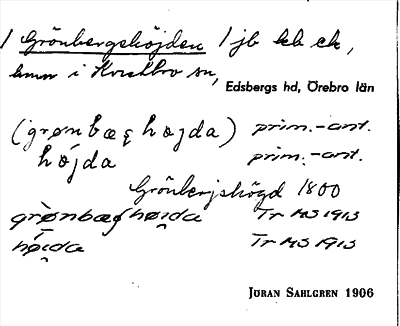 1 Grönbergshöjden 1 jb
i Kvistbro sn,
Edsbergs hd, Örebro län
(grønbæꞔhøjda) prim.-ant.
höjda prim.-ant.
Grönberjshögd 1800
grønbæꞔhøida Tr MS 1913
høida Tr MS 1913
JÖRAN SAHLGREN 1906